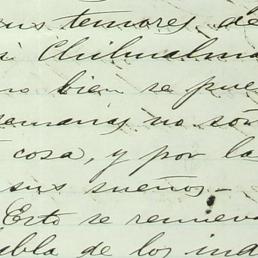 sus temores de
si Chihuahua
no bien se pue
semanas no son
cosa, y por la
sus sueños.-
Esto se renueva
ibla de los ind